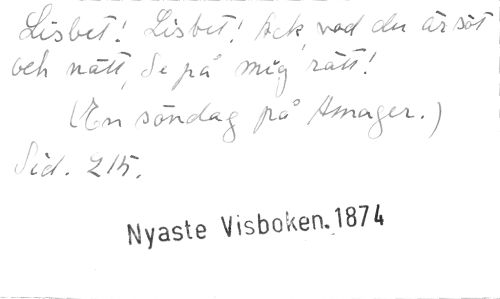 Lisbet! Lisbet! Ack, vad du är söt
och nätt, Se på mig rätt!
(En söndag på Amager.)
Sid. 215.
Nyaste Visboken. 1874